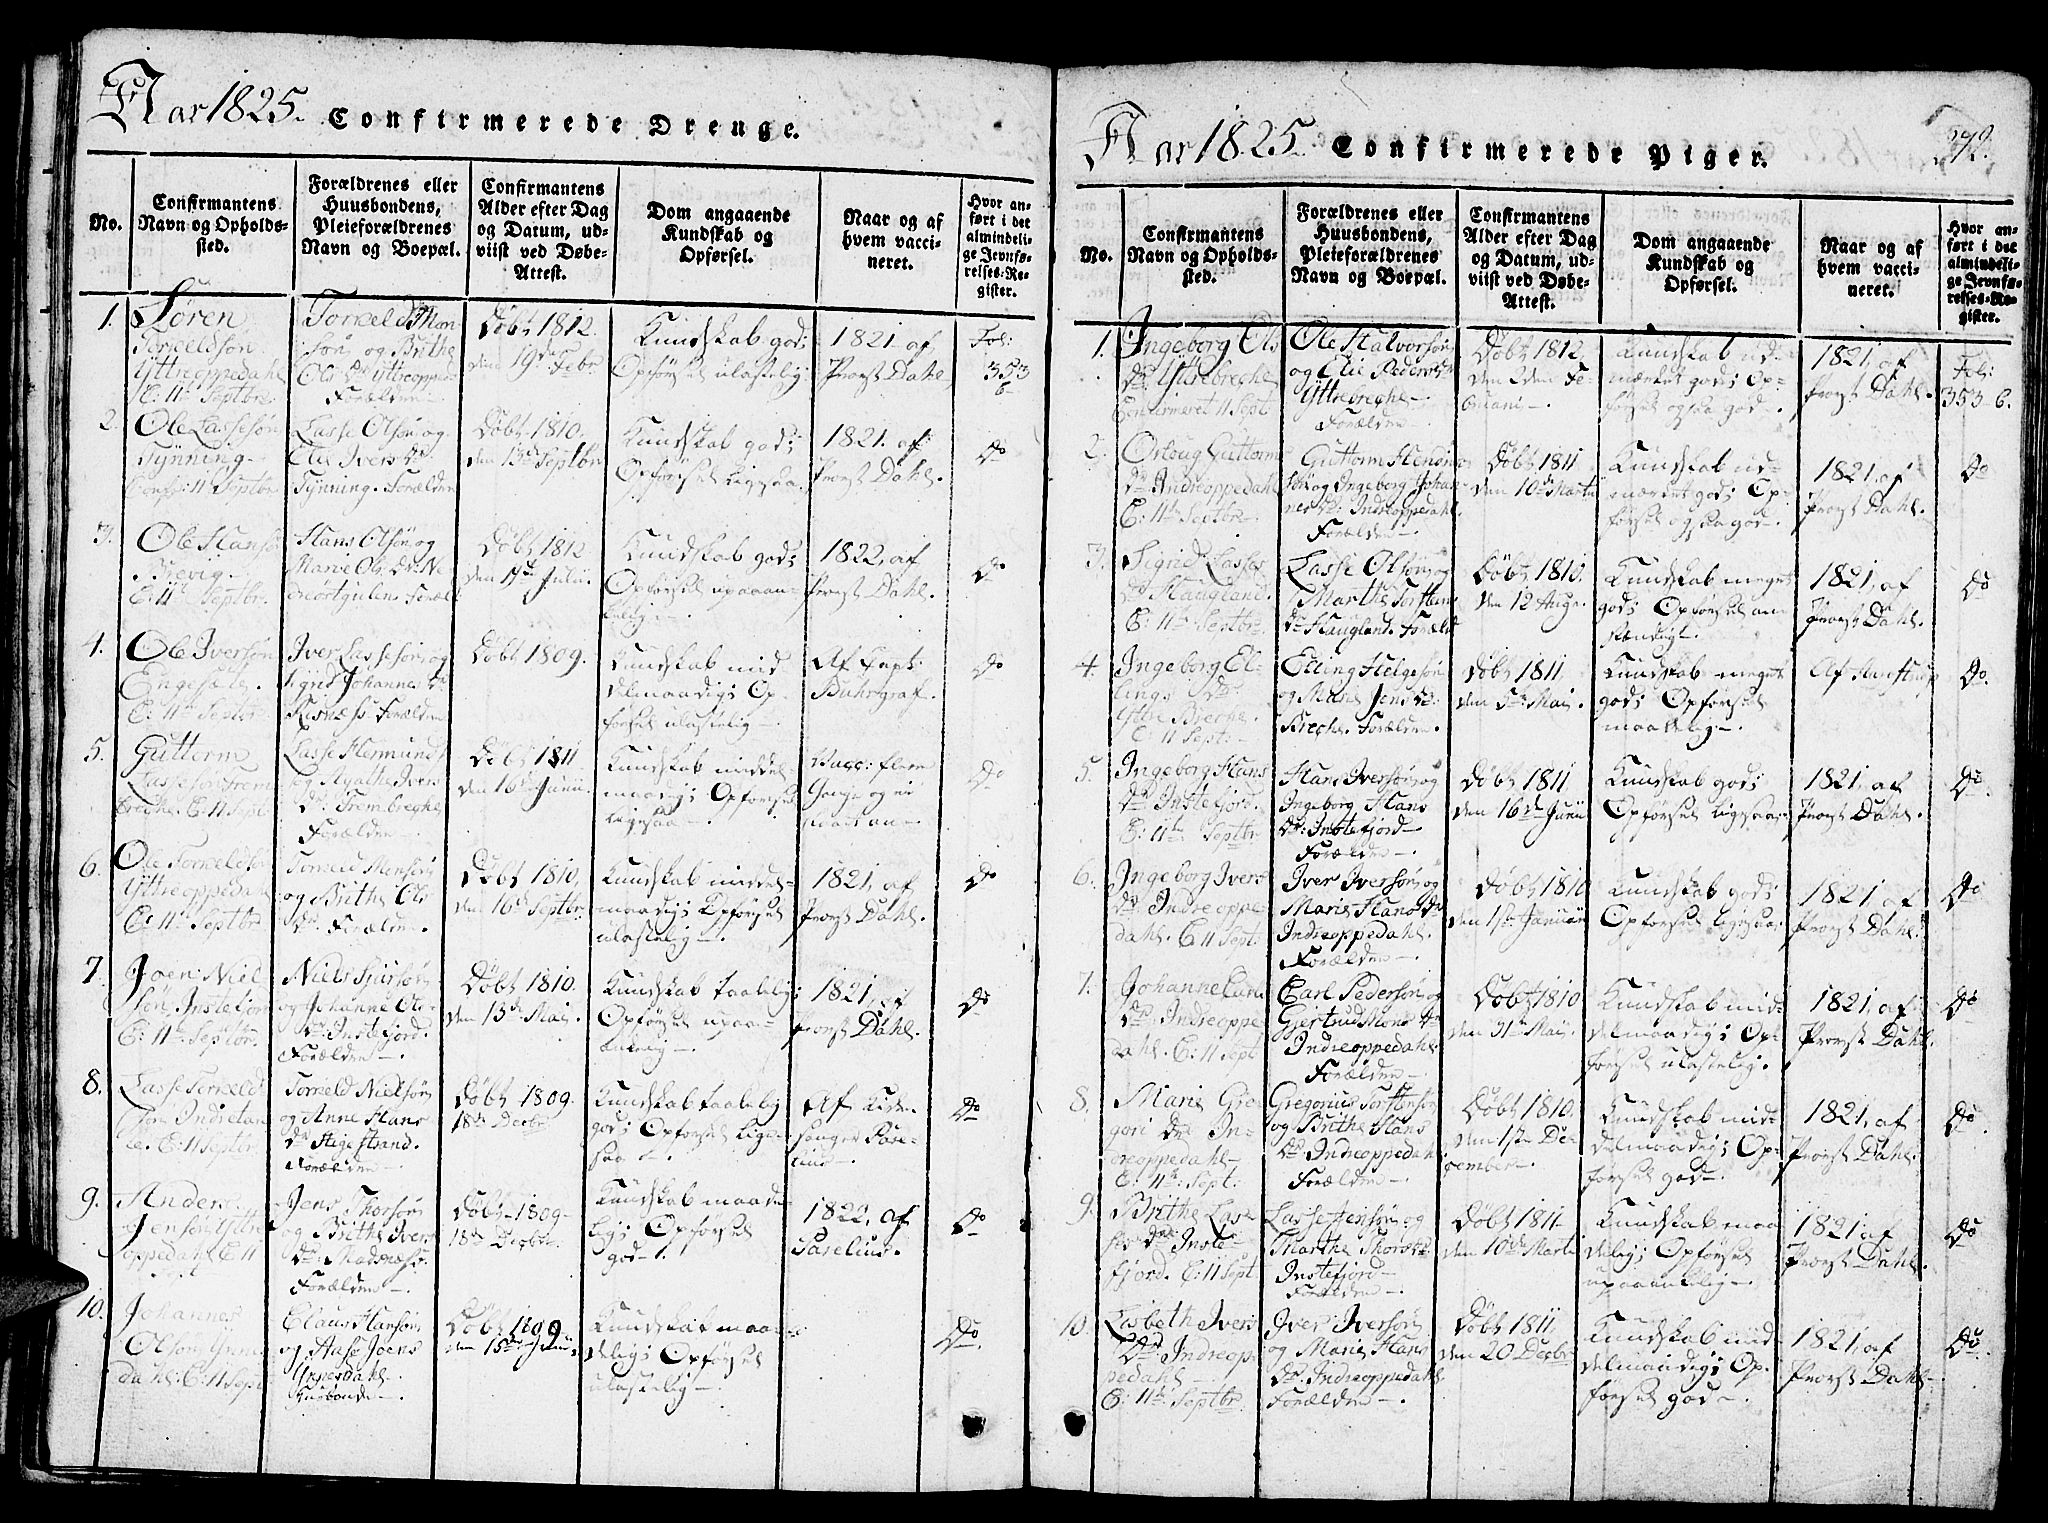 Aar 1825. Confirmerede Drenge.
No.
Confirmantens
Navn og Opholds-
sted.
Forældrenes eller
Huusbondens,
Pleieforældrenes
Navn og Boepæl.
Confirmantens
Alder efter Dag
og Datum, ud-
viist ved Døbe-
Attest.
Dom angaaende
Kundskab og
Opførsel.
Naar og af
hvem vacci-
neret.
Hvor an-
ført i det
almindeli-
ge Jevnfø-
relses-Re-
gister.
1.
Sören
Torkeldsön
Yttreoppedahl
C: 11te Septbr.
Torkeld Mon
sön og Brithe
Ols Dr Yttreopped
Forældre
Døbt 1812
den 19de Febr
Kundskab god;
Opförsel ulastelig
1821. af
Provst Dahl
Fol:
353
b
2.
Ole Lassesön
Tynning
Conf: 11 Septbr
Lasse Olsön og
Elie Ivers Dr
Tynning. Forældre
Døbt 1810.
den 13de Septbr
Kundskab god;
Opförsel ligesaa
1821. af
Provst Dahl.
Do
3.
Ole Hansö
Brevig
C: 11te Septbr.
Hans Olsön og
Marie Ols Dr Ne
Foræld
Døbt 1812
den Julii
Kundskab god;
Opförsel upaaan-
kelig
1822, af
Provst Dahl.
Do
4.
Ole Iversön
Engesæte.
C: 11te Septbr
Iver Lassesön og
Sigrid Johanne Dr
Risnæss Forældre
Døbt 1809.
Kundskab mid
delmaadig; Op
försel ulastelig
Af Capt:
Do
5.
Guttorm
Lassesön Frem
breche. C: 11 Sept
Lasse Hermunds
og Agathe Ivers
Dr: Frembreche
Forældre
Døbt 1811
den 16de Junii
Kundskab middel-
maadig; Opförsel
ligesaa
Vacc: flere
Gange og ei
Do
6.
Ole Torkelds
Yttreoppedahl
C: 11te Septbr
Torkeld Monsön
og Brithe Ols
Dr. Forældre.
Døbt 1810,
den 16de Septbr.
Kundskab middel-
maadig; Opförsel
ulastelig
1821, af
Provst Dahl.
Do
7.
Joen Niel
sön, Instefjor
C: 11te Septbr.
Niels
og Johanne Ols
Dr: Instefjord.
Forældre
Døbt 1810.
den 13de Mai.
Kundskab taalelig;
Opförsel upaa-
ankelig
1821, af
Provst Dahl.
Do
8.
Lasse Torkeld
sön
C: 11 Septbr.
Torkeld Nielsön
og Anne Hans
Dr
Forældre
Døbt 1809.
18de Decbr
Kundskab taalelig
god; Opförsel lige
saa
Af Kirke
sanger Pase
lius
Do
9.
Anders
Jensön Yttre
oppedahl C: 11
Sept
Jens Thorsön
og Brithe Ivers
Dr: Madsnæss.
Forældre
Døbt 1809
18de Decbr
Kundskab maade
lig; Opförsel
god
1822, af
Paselius.
Do
10.
Johannes
Olsön Ynnes
dahl: C: 11 Sept
Claus Hansön
og Aase Joens
Ynnesdahl
Husbonde
Døbt 1809
den 15de Junii
Kundskab maa
delig; Opförsel
ulastelig
Do
Aar 1825 Confirmerede Piger.
292.
No.
Confirmantens
Navn og Opholds-
sted.
Forældrenes eller
Huusbondens,
Pleieforældrenes
Navn og Boepæl.
Confirmantens
Alder efter Dag
og Datum, ud-
viist ved Døbe-
Attest.
Dom angaaende
Kundskab og
Opførsel.
Naar og af
hvem vacci-
neret.
Hvor an-
ført i det
almindeli-
ge Jevnfø-
relses-Re-
gister.
1.
Ingeborg Ols
Dr Yttrebreche
Confirmeret 11 Sept
Ole Halvorsön
og Elie Peders Dr
Yttrebreche
Forældre
Døbt 1812,
den 2den Fe-
bruarii
Kundskab ud-
mærket god; Op-
försel ogsaa god
1821, af
Provst Dahl.
Fol:
353 b.
2.
Osloug Guttorms
Dr. Indreoppedahl
C: 11te Septbr
Guttorm
sön og Ingeborg Johan
nes Dr: Indreoppedahl
Forældre
Døbt 1811
den 10de Martii
Kundskab ud-
mærket god; Op
försel ogsaa god.
1821, af
Provst Dahl.
Do
3.
Sigrid Lasses
Dr Haugland.
C: 11te Septbr.
Lasse Olsön og
Marthe Torstens
Dr Haugland. Foræld
Døbt 1810.
den 12 Aug.
Kundskab meget
god; Opförsel an
stændig.
1821, af
Provst Dahl.
Do
4.
Ingeborg El-
lings Dr
Yttre Breche.
C: 11 Sept:
Elling Helgesön
og Marie Jens Dr:
Breche. Forældre
Døbt 1811
den 5te Mai.
Kundskab meget
god; Opförsel
maadelig
Af
Do.
5.
Ingeborg Hans
Dr Instefjord.
C: 11te Septbr
Hans Iversön og
Ingeborg Hans
Dr: Instefjord
Forældre
Døbt 1811
den 16de Junii
Kundskab god;
Opförsel ligesaa
1821, af
Provst Dahl.
Do.
6.
Ingeborg Ivers
Dr Indreoppe
dahl. C: 11 Sept:
Iver Iversön og
Marie Hans Dr
Indreoppedahl.
Forældre
Døbt 1810
den 1ste Januarii
Kundskab god;
Opförsel ligesaa.
1821 af
Provst Dahl.
Do
7.
Johanne Carls
Dr. Indreoppe
dahl. C: 11 Sept
Carl Pedersön og
Giertrud Mons Dr
Indreoppedahl
Forældre
Døbt 1810
den 31te Mai.
Kundskab mid
delmaadig; Op-
försel ulastelig.
1821, af
Provst Dahl.
Do
8.
Marie Gre
gori Dr In-
dreoppedahl
C: 11te Sept:
Gregorius Torstensön
og Brithe Hans
Dr: Indreoppedahl
Forældre
Døbt 1810.
den 1ste De-
cember
Kundskab mid
delmaadig; Op-
försel god
1821, af
Provst Dahl.
Do
9.
Brithe Las
ses Dr Inste
fjord. C: 11 Sept
Lasse Jensön og
Marthe Thors Dr
Instefjord
Forældre
Døbt 1811
den 10de Martii
Kundskab maa
delig; Opförsel
upaaankelig
1821. af
Provst Dahl.
Do
10.
Lisbeth Ivers
Dr Indreop-
pedahl
C: 11te Septbr
Iver Iversön
og Marie Hans
Dr: Indreoppedahl
Forældre
Døbt 1811
den 20 Decbr
Kundskab mid
delmaadig; Op.
försel god
1821, af
Provst Dahl.
Do.